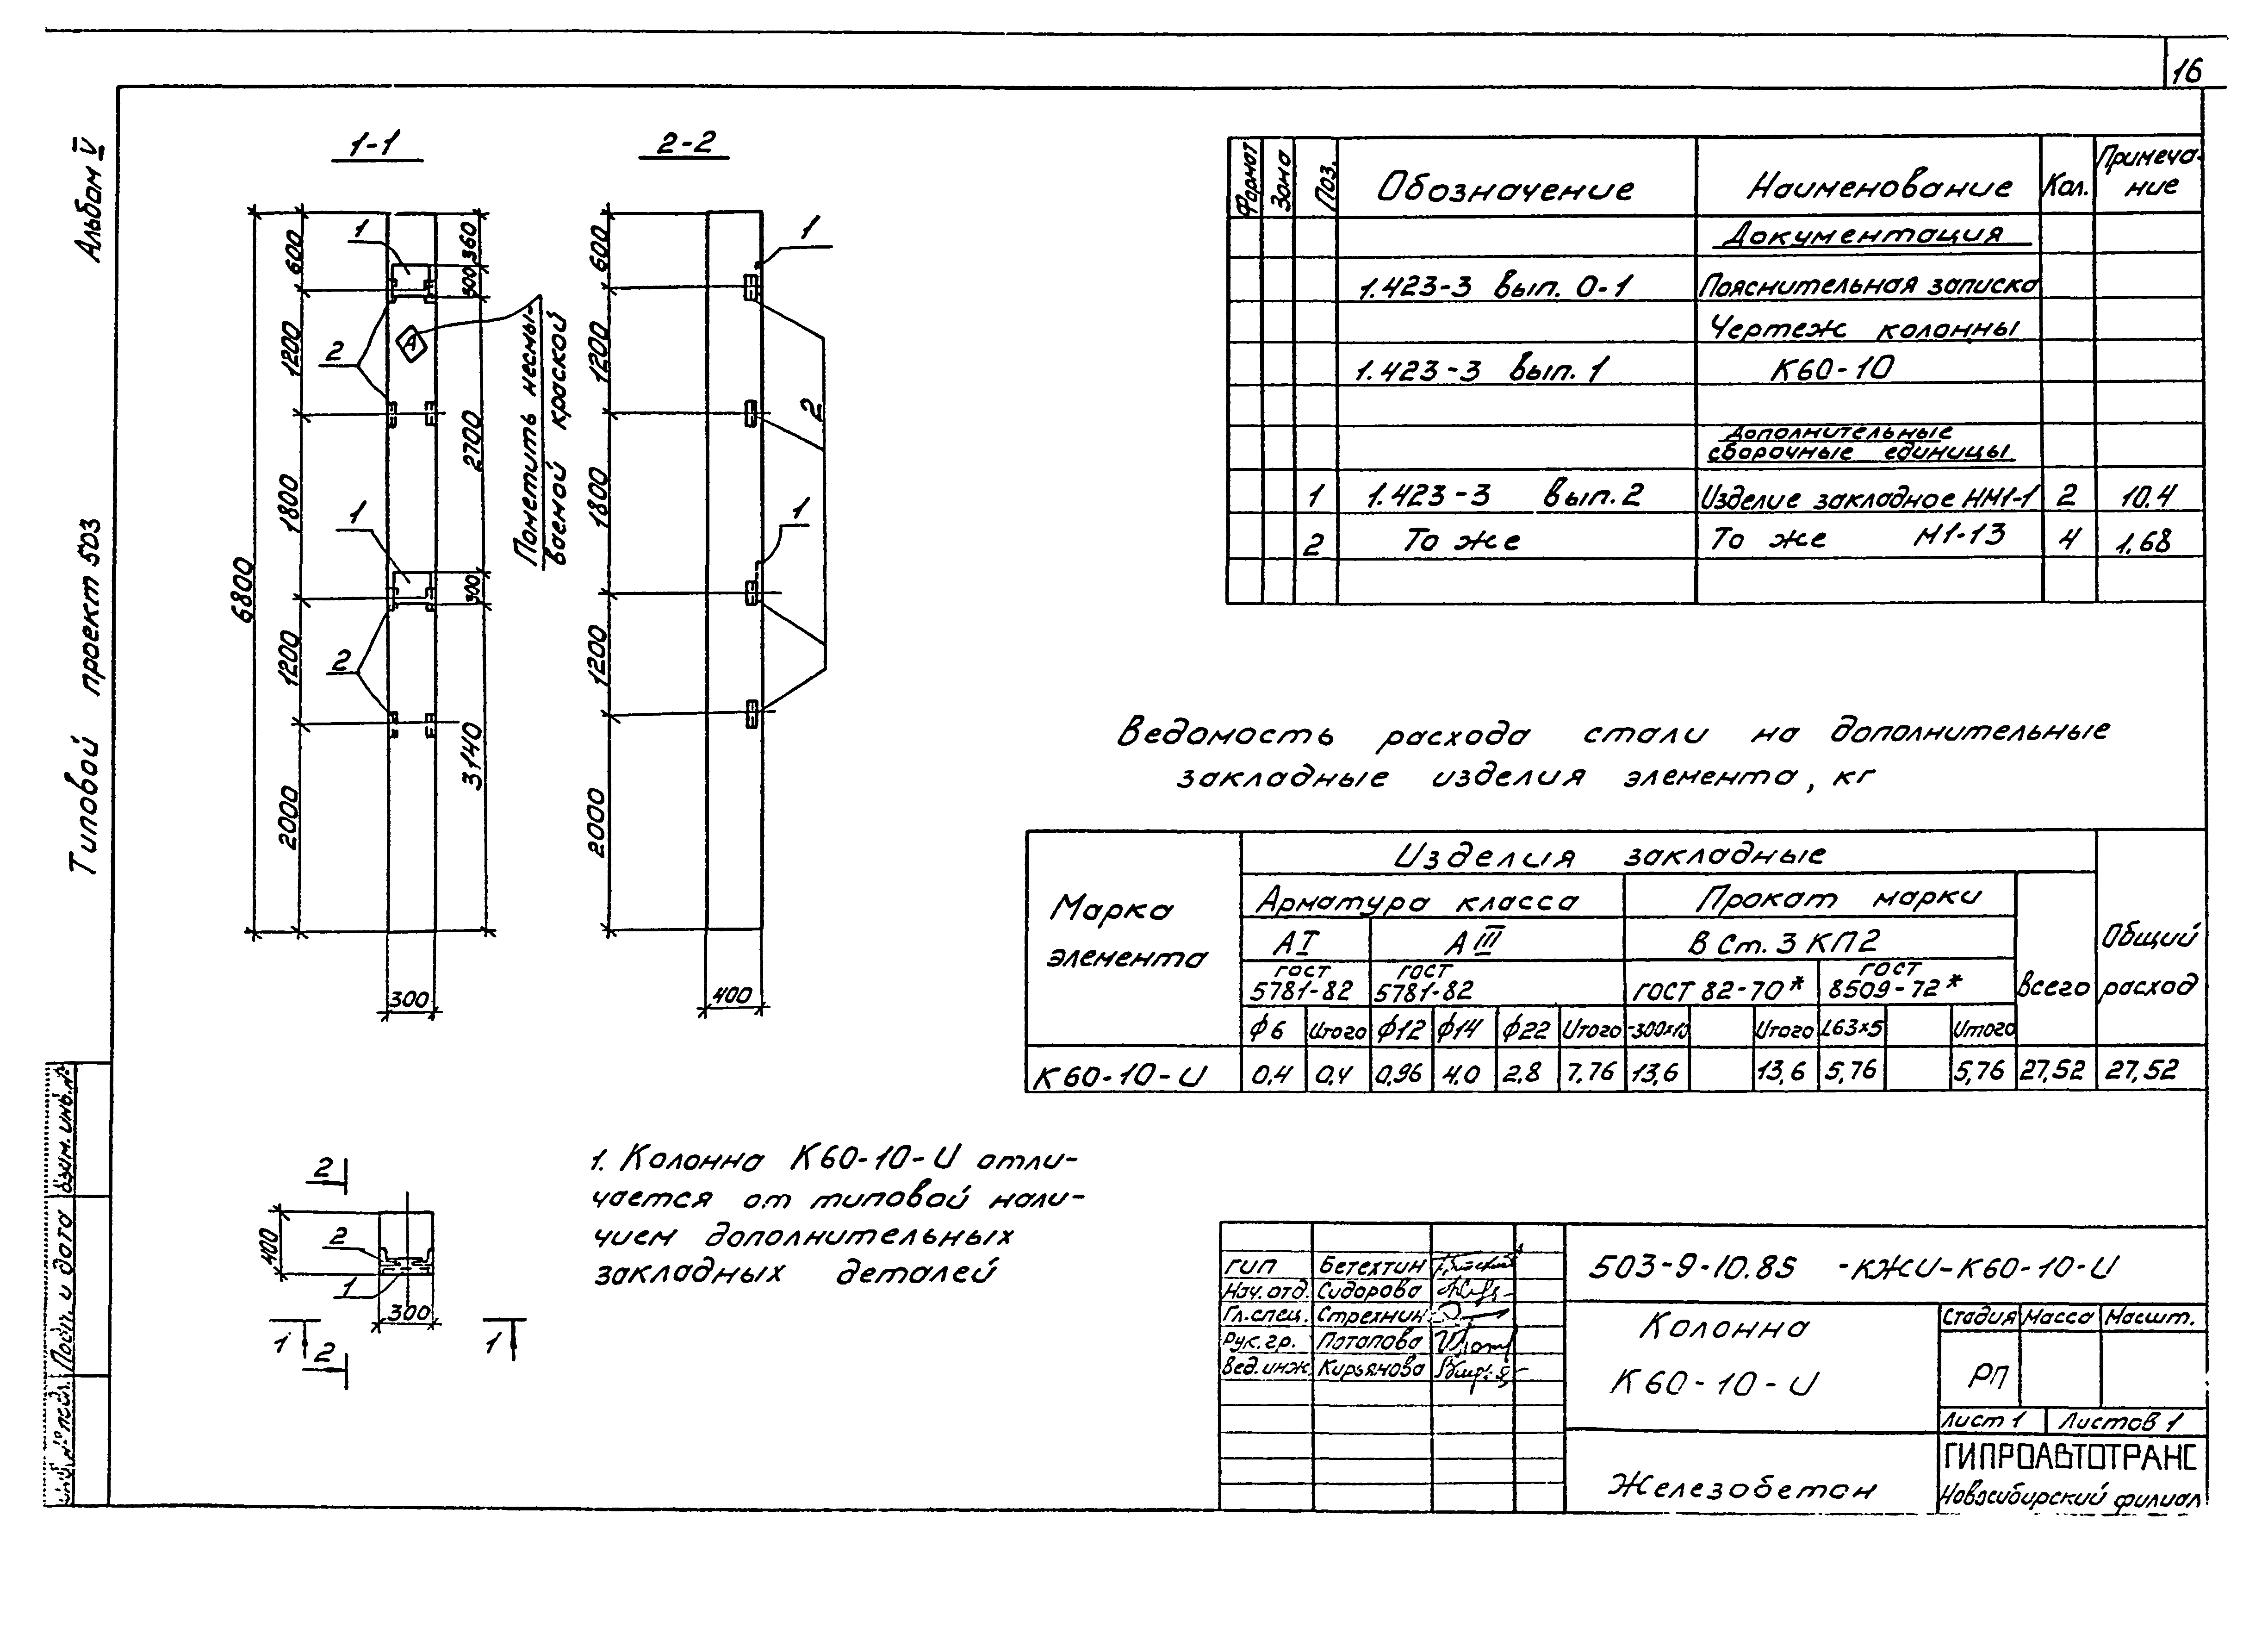 16
Альбом V
Типовой проект 503
1-1
2-2
600
1200
1800
1200
2000
6800
360
300
2700
300
3140
1
2
1
2
А
Пометить несмы-
ваемой краской
300
600
1200
1800
1200
2000
1
2
1
400
Формат
Зона
Поз.
Обозначение
Наименование
Кол.
Примеча-
ние
Документация
1.423-3 вып. 0-1 Пояснительная записка
Чертеж колонны
1.423-3 вып. 1 К60-10
Дополнительные
сборочные единицы
1 1.423-3 вып. 2 Изделие закладное НМ1-1 2 10.4
2 То же То же М1-13 4 1,68
Ведомость расхода стали на дополнительные
закладные изделия элемента, кг
Марка
элемента
Изделия закладные
Арматура класса
Прокат марки
АI
АIII
ВСт.3КП2
гост
5781-82
гост
5781-82
гост 82-70*
гост
8509-72*
Всего
Общий
расход
ф6 Итого ф12 ф14 ф22 Итого -300х10 Итого L63х5 Итого
К60-10-И 0,4 0,4 0,96 4,0 2,8 7,76 13,6 13,6 5,76 5,76 27,52 27,52
2
400
2
1
300
1
2
1
1. Колонна К60-10-И отли-
чается от типовой нали-
чием дополнительных
закладных деталей
ГИП Бетехтин
Нач.отд. Сидорова
Гл.спец. Стрехнин
Рук.гр. Потапова
Вед.инж. Кирьянова
503-9-10.85 -КЖИ-К60-10-И
Колонна
К60-10-И
Стадия Масса Масшт.
РП
Лист 1 Листов 1
Железобетон
ГИПРОАВТОТРАНС
Новосибирский филиал
Взам. инв.№
Подп. и дата
Инв.№ подл.